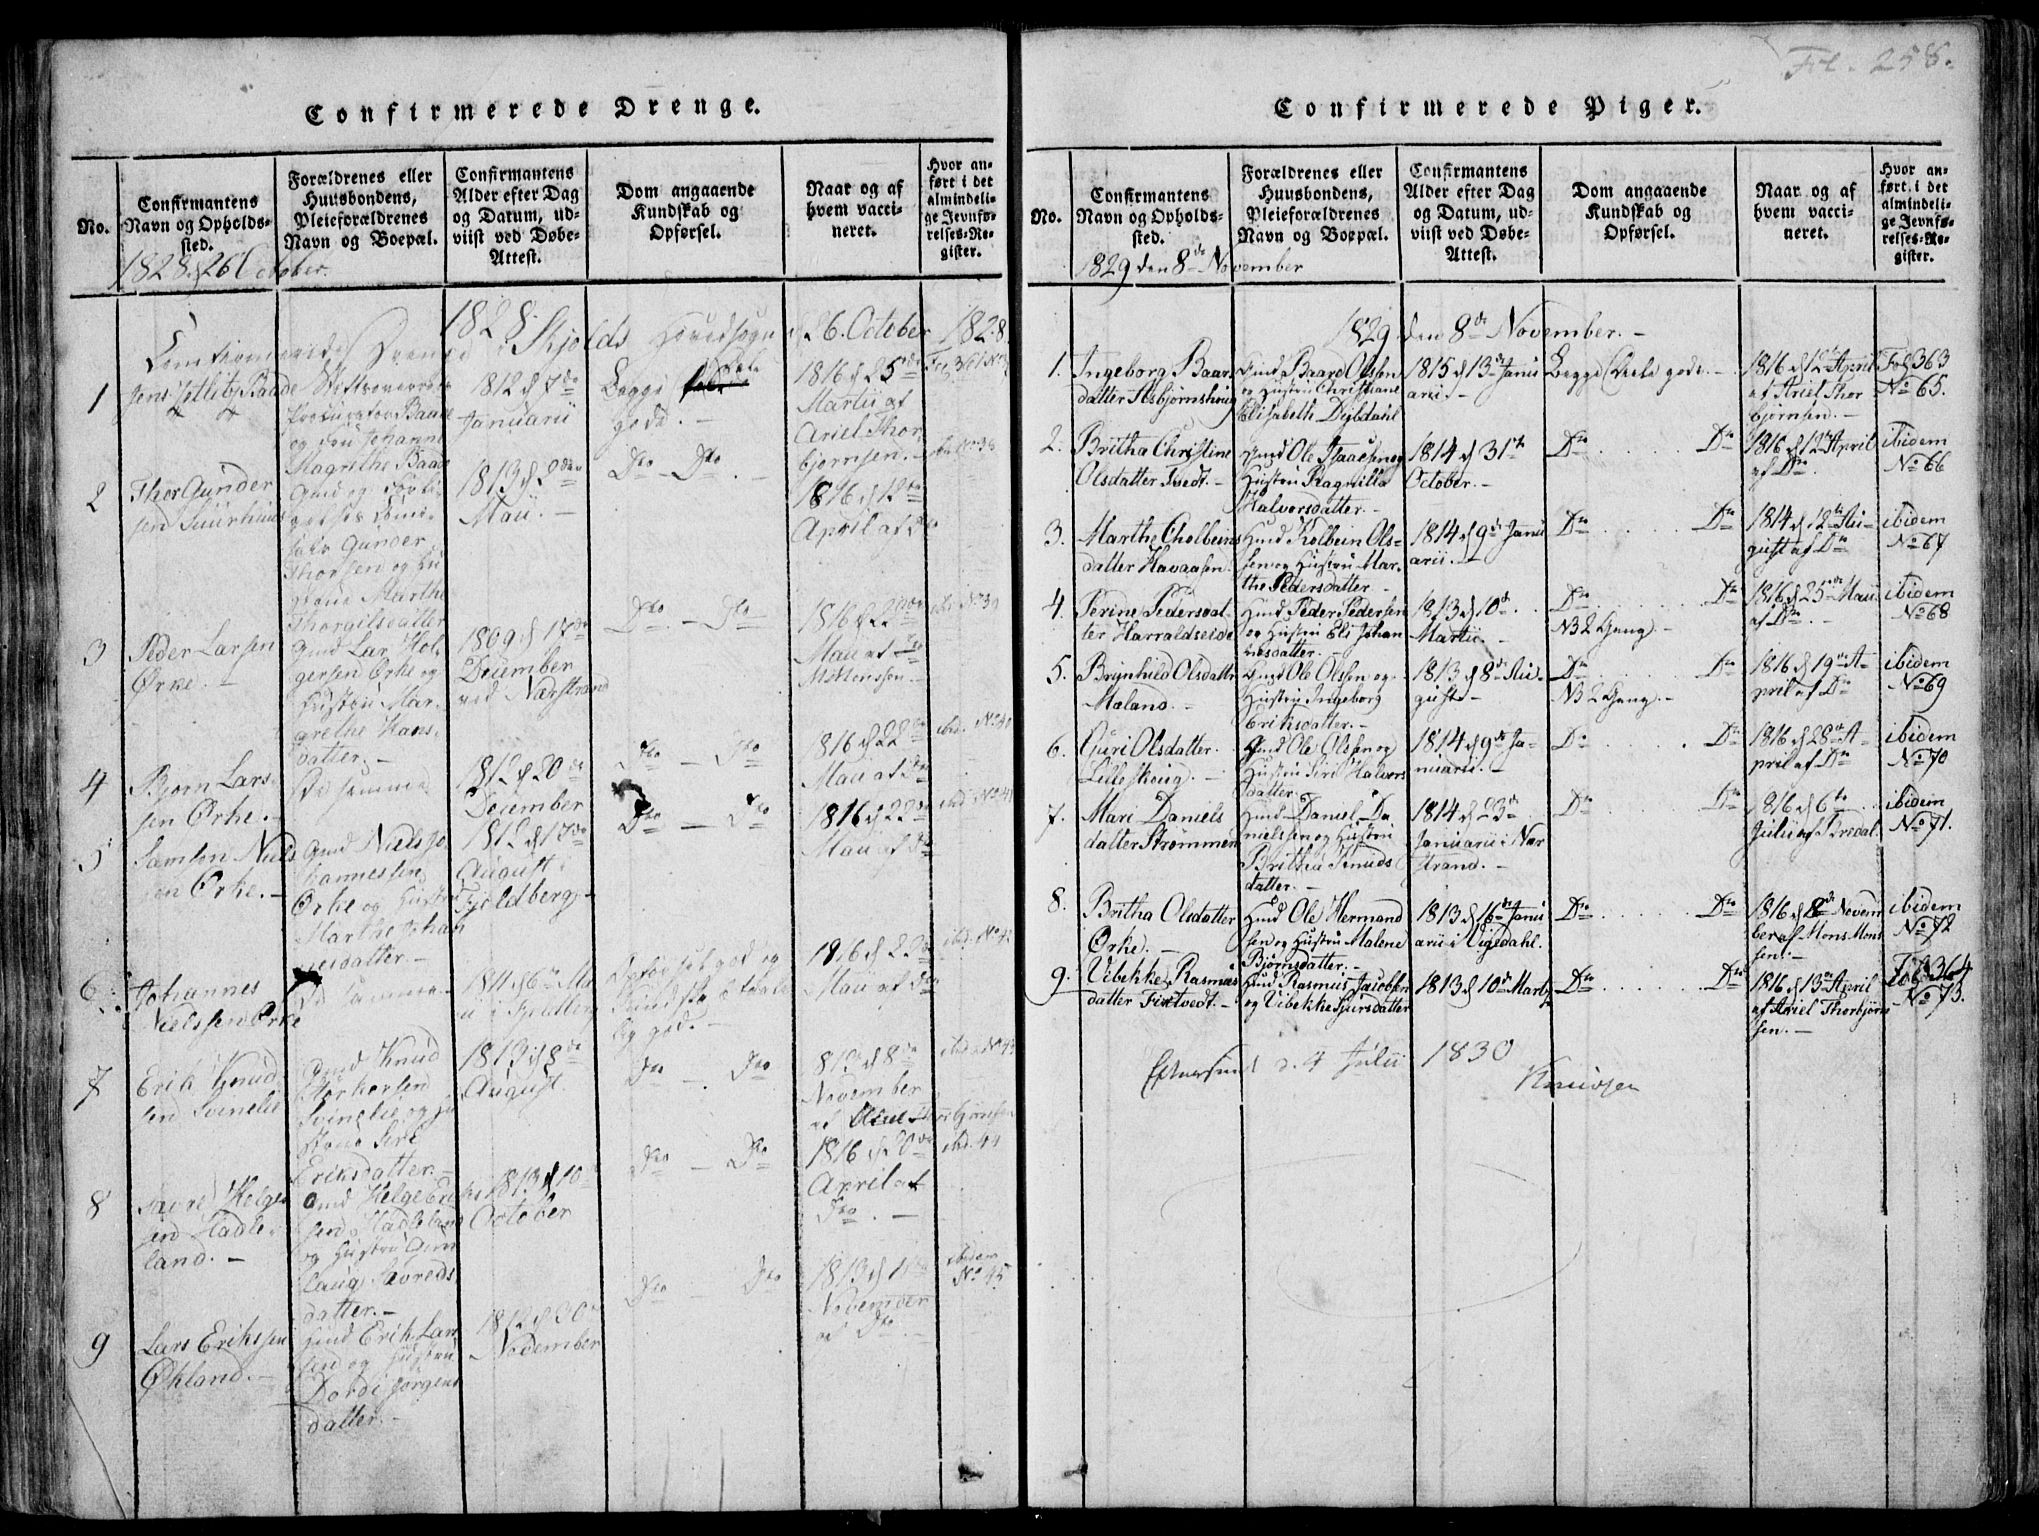 Fol. 258.
Confirmerede Drenge.
No.
Confirmantens
Navn og Opholds-
sted.
1828 d 26 October.
Forældrenes eller
Huusbondens,
Pleieforældrenes
Navn og Boepæl.
Confirmantens
Alder efter Dag
og Datum, ud-
viist ved Døbe-
Attest.
Dom angaaende
Kundskab og
Opførsel.
Naar og af
hvem vacci-
neret.
Hvor an-
ført i det
Almindeli-
ge Jevnfø-
relses-Re-
gister.
Confirmerede Drenge i Skjolds Hovedsogn d 26. October 1828
1
Jens Gotlib Baade
Procurator Baade
og Frue Johanne
Magrethe Baade
1812 d 7de
Januarii
Begge
gode. -
1816 d 25de
Martii af
Ariel Thor-
bjørnsen. -
2
Thor Gunder
sen
Gunder
Thorsen og Hu
strue Marthe
Thorgilsdatter
1813 d 2den
Maii. -
Dto - Dto. -
1816 d 12te
April af Dto
ibd. No 38
3
Peder Larsen
Ørke. -
Gmd Lars Hol-
gersen Ørke og
Hustru Mar-
grethe Hans-
datter. -
1809 d 17de
December
ved Nærstrand
Dto. - Dto
1816 d 22den
Maii af
Mortenssen. -
ibd. No 39
4
Bjørn Lars-
sen Ørke. -
De samme
1812 d 20de
December
Dto - Dto
1816 d 22de
Maii af Dto
ibd. No 40
5
Samson Niels
sen Ørke. -
Gmd Niels Jo
hannessen
Ørke og Hustru
Marthe Johan
nesdatter. -
1812 d 17de
August
Fjeldberg. -
Dto - Dto
1816 d 22de
Maii af Dto
ibd. No 41
6
Johannes
Nielssen Ørke
De samme. -
1811 d 6te Ma
ii i Fjeldberg
Opførsel god og
Kundskab taale
lig god. -
1816 d 22de
Maii af Dto
ibd. No 42
7
Erik Knud
sen Svinelie
Gmd Knud
Størkersen
Svinelie og Hu
strue Siri
Eriksdatter. -
1813 d 8de
August.
Dto - Dto
1813 d 8de
November
af Ariel Thorbjørnsen
ibd. No 43
8
Sævre Helge
sen Hadle-
land. -
Gmd Helge Erik
sen Hadleland
og Hustru Gun
laug Sævreds
datter. -
1813 d 10
October
Dto - Dto
1816 d 20de
April af
Dto. -
ibd. 44
9
Lars Erikssen
Økland. -
Gmd Erik Lar
sen og Hustru
Dordi Jørgens
datter. -
1812 d 30
November
Dto - Dto
1813 d 11te
November
af Dto. -
ibidem
No 45
Confirmerede Piger.
No.
Confirmantens
Navn og Opholds-
sted.
1829 den 8de November
Forældrenes eller
Huusbondens,
Pleieforældrenes
Navn og Boepæl.
Confirmantens
Alder efter Dag
og Datum, ud-
viist ved Døbe-
Attest.
Dom angaaende
Kundskab og
Opførsel.
Naar og af
hvem vacci-
neret.
Hvor an-
ført i det
almindeli-
ge Jevnfø-
relses-Re-
gister.
1829 den 8de November. -
1.
Ingeborg Baar
datter Asbjørnshoug
Gmd Baard Olssen
og Hustru Christiane
Elisabeth Dyldahl
1815 d 13de Janu
arii. -
Begge Deele gode. -
1816 d 12te April
af Ariel Thor
bjørnsen. -
Fol 363
No 65.
2.
Britha Christine
Olsdatter Tvedt. -
Gmd Ole Isaacsen og
Hustru Ragnilla
Halvorsdatter. -
1814 d 31te
October. -
Do . . . . . Do
1816 d 12te April
af Do.
ibidem
No 66
3.
Marthe Cholbeins
datter Havaasen. -
Hmd Kolbein Ols-
sen og Hustru Mar-
the Pedersdatter. -
1814 d 9de Janu
arii. -
Do . . . . . Do
1814 d 12te Au-
gust af Do
ibidem
No 67
4.
Perine Pedersdat
ter Harraldseide
Hmd Peder Pedersen
og Hustru Eli Johan
nesdatter. -
1813 d 10de
Martii. -
Do . . . . . Do
NB 2 Gang. -
1816 d 25de Maii
af Do. -
ibidem
No 68
5.
Brynhild Olsdatter
Maland. -
Gmd Ole Olssen og
Hustru Ingeborg
Eriksdatter. -
1813 d 8de Au-
gust. -
Do . . . . . Do
NB 2 Gang. -
1816 d 19de A-
pril af Do
ibidem
No 69
6.
Guri Olsdatter
Lilleskoug. -
Gmd Ole Olssen og
Hustru Siri Halvors
datter. -
1814 d 9de Ja-
nuarii. -
Do . . . . . Do
1816 d 28de A-
pril af Do
ibidem
No 70
7.
Mari Daniels
datter Strømmen
Hmd Daniel Da
nielssen og Hustru
Britha Knuds
datter. -
1814 d 23de
Januarii i Nær
strand. -
Do . . . . . Do
1816 d 6te
Julii af Bredal.
ibidem
No 71.
8.
Britha Olsdatter
Ørke. -
Hmd Ole Hermand
sen og Hustru Malene
Bjørnsdatter. -
1813 d 16de Janu
arii i Vigedahl.
Do . . . . . Do
1816 d 8de Novem
ber af Mons Mons
sen. -
ibidem
No 72
9.
Vibekke Rasmus
datter Fixtvedt. -
Hmd Rasmus Jacobsen
og Vibekke Sjursdatter
1813 d 10de Martii
Do . . . . . Do
1816 d 13de April
af Ariel Thorbjørn
sen. -
Fol 364
No 73.
Efterseet d. 4 Julii 1830